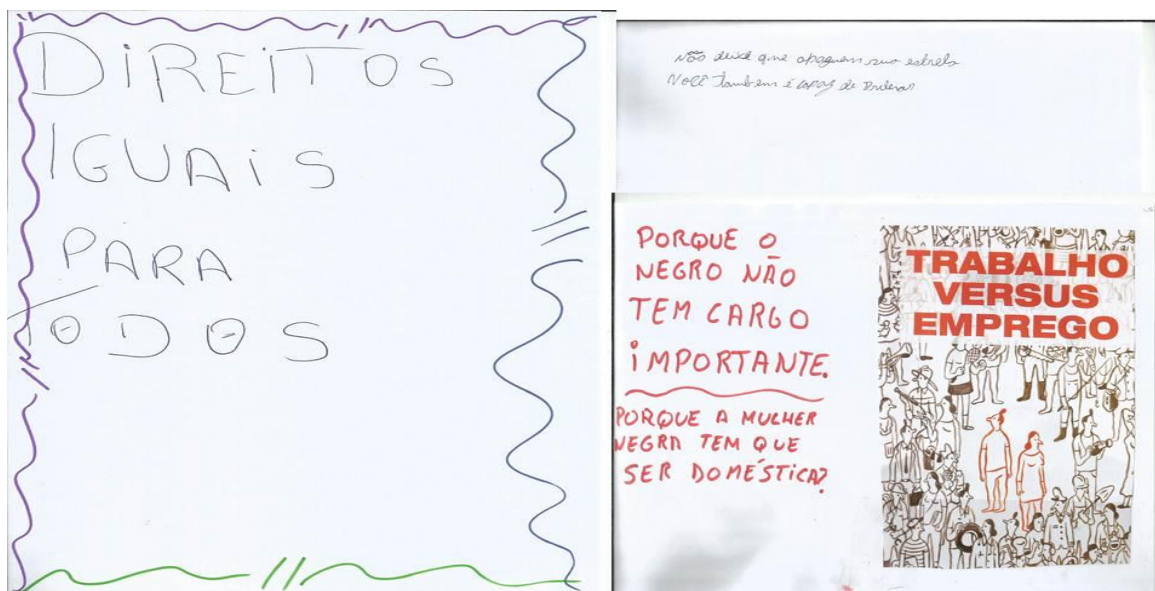 DiREiTOS
IGUAiS
PARA
TODOS
Não deixe que apaguem sua estrela
Você Também é capaz de Brilhar
PORQUE O
NEGRO NÃO
TEM CARGO
iMPORTANTE.
PORQUE A MULHER
NEGRA TEM QUE
SER DOMÉSTICA?
TRABALHO
VERSUS
EMPREGO